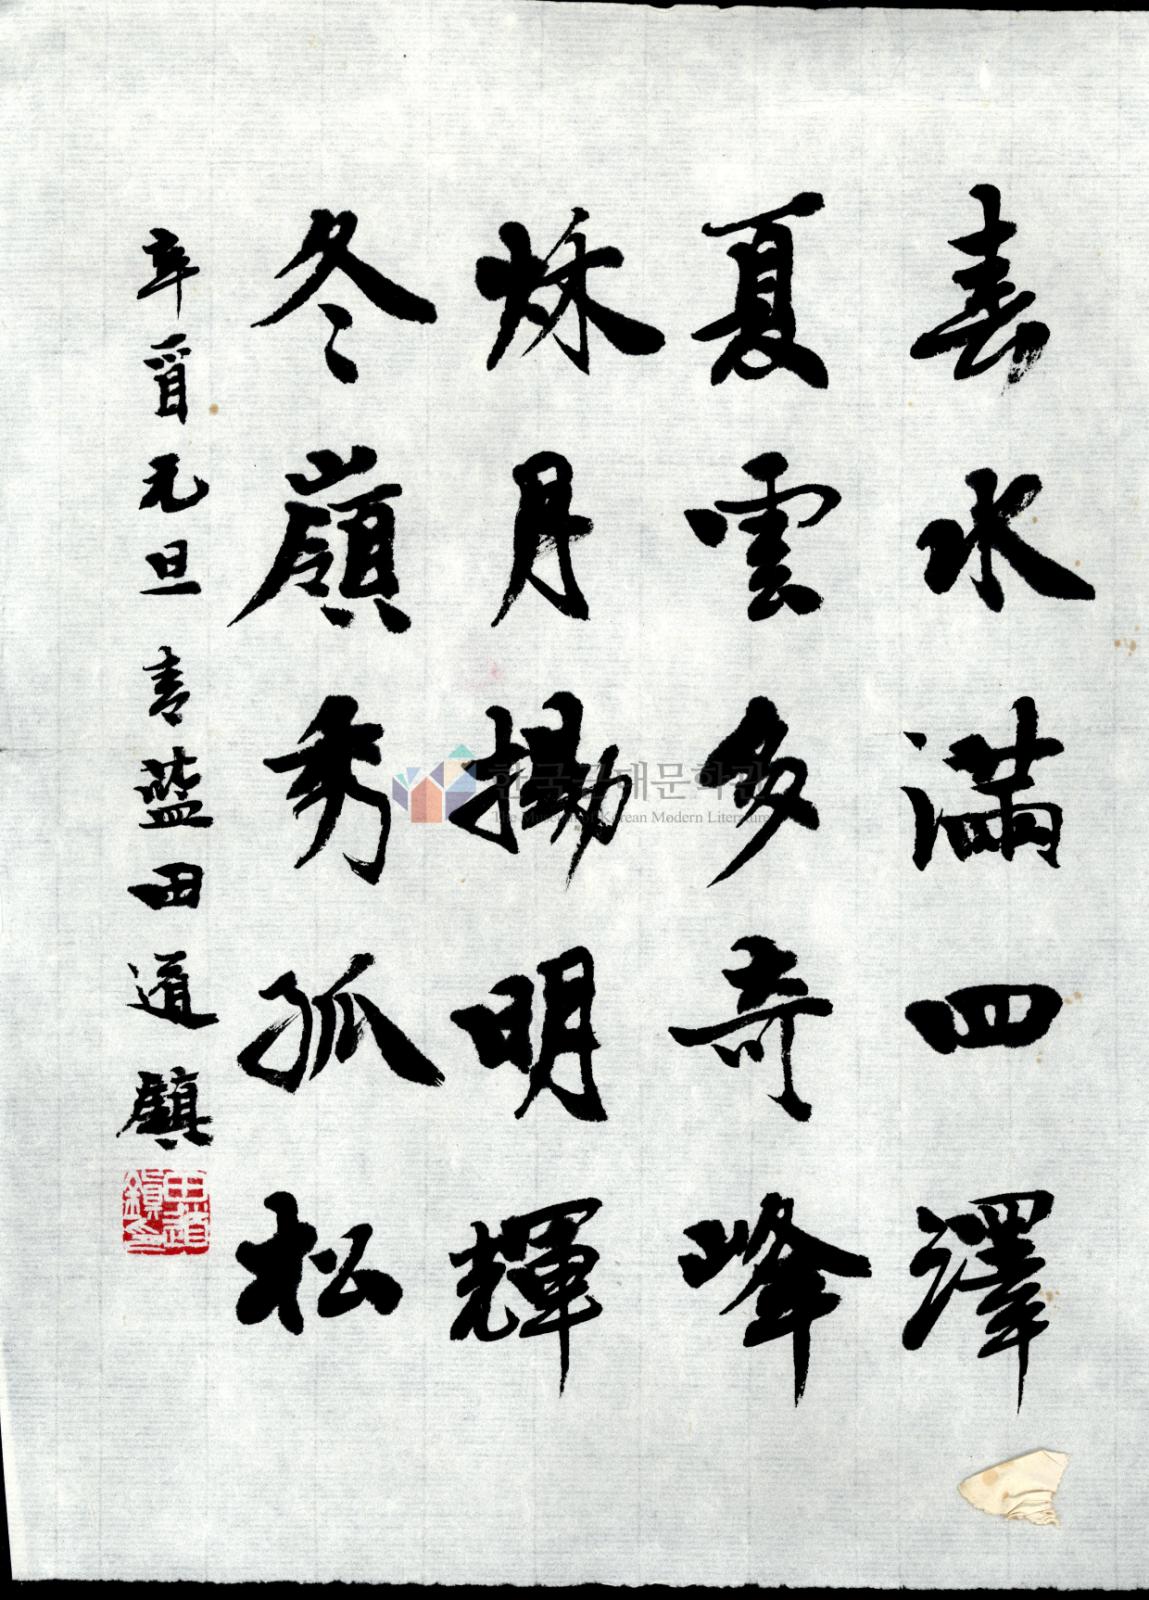 春水滿四澤
夏雲多奇峰
秋月揚明輝
冬嶺秀孤松
辛酉元旦 青藍田道鎮
田道鎮印
한국근대문학관
The Museum of Korean Modern Literature